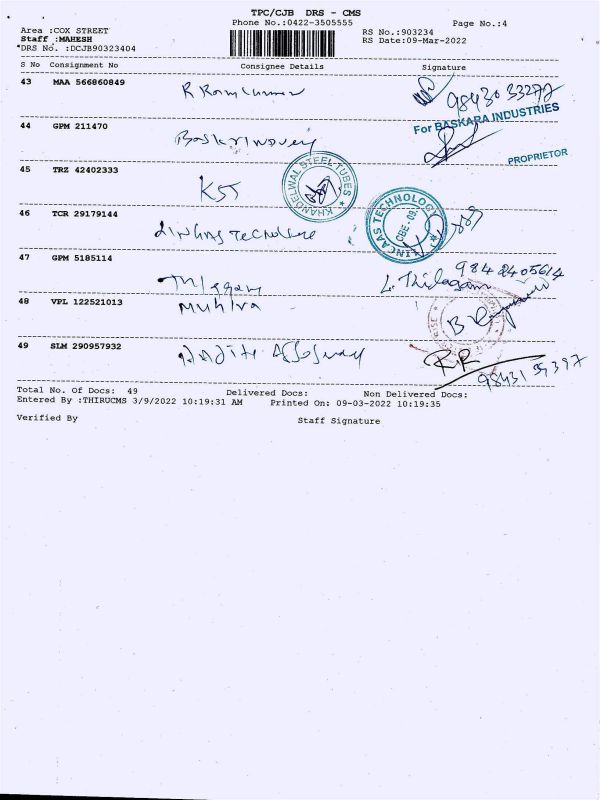 TPC/CJB DRS - CMS
Phone No.:0422-3505555
Page No.:4
Area :COX STREET
RS No.:903234
Staff :MAHESH
RS Date:09-Mar-2022
*DRS No. :DCJB90323404
S No Consignment No Consignee Details Signature
43 MAA 566860849
98430 33277
For BASKARA INDUSTRIES
44 GPM 211470
PROPRIETOR
45 TRZ 42402333 KST
KHANDELWAL STEEL TUBES
46 TCR 29179144
LINCAAS TECHNOLOGY
CBE - 09.
47 GPM 5185114
L. Thilagam 984 2405614
48 VPL 122521013
49 SLM 290957932
RR
Total No. Of Docs: 49 Delivered Docs: Non Delivered Docs:
Entered By :THIRUCMS 3/9/2022 10:19:31 AM Printed On: 09-03-2022 10:19:35
Verified By Staff Signature